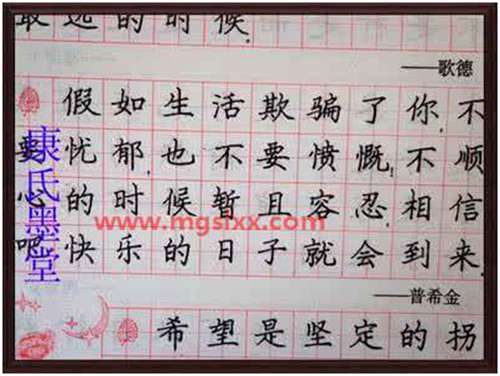 远的时候.
——歌德
假如生活欺骗了你,不
要忧郁,也不要愤慨,不顺
心的时候暂且容忍,相信
吧,快乐的日子就会到来.
——普希金
希望是坚定的拐
康氏墨堂
www.mgslxx.com